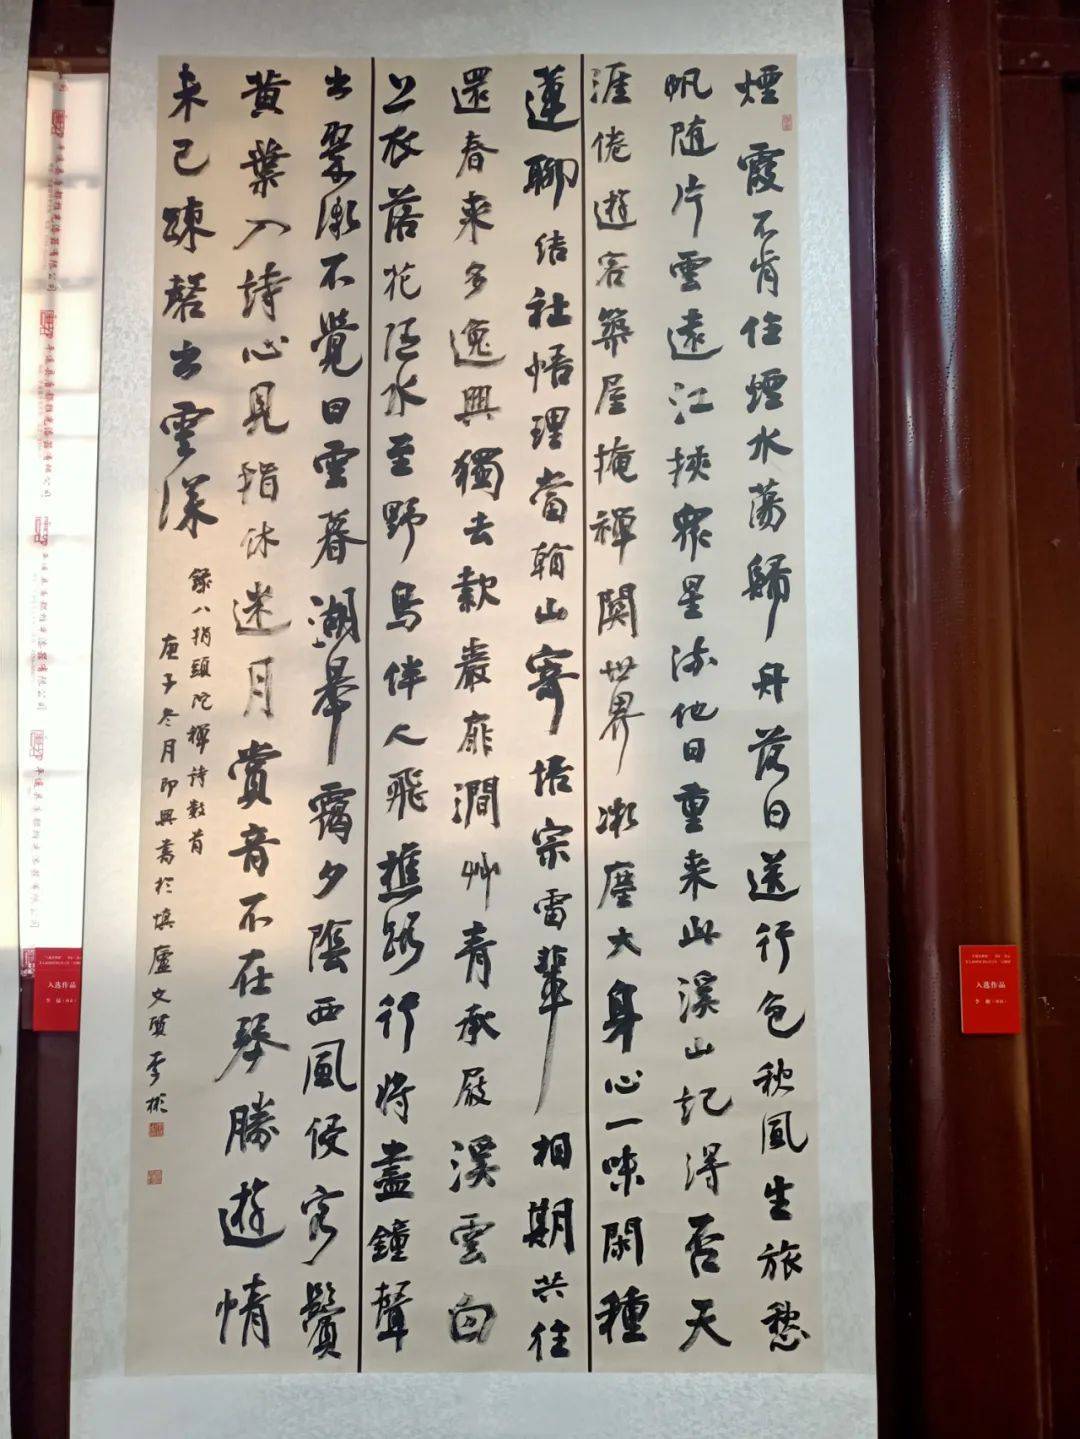 煙霞不肯住煙水蕩歸舟落日送行色秋風生旅愁
帆随片雲遠江挾衆星流他日重来此溪山記得否天
涯倦遊客築屋掩禪関世界微塵大身心一味閑種
蓮聊結社悟理當山寄语宗雷輩相期共往
還春来多逸興獨去款巖扉澗艸青承屐溪雲白
上衣落花随水至野鳥伴人飛樵路行将盡鐘聲
出翠微不覺日雲暮湖舉靄夕陰西風侵客鬢
黃葉入詩心見指休迷月賞音不在琴勝遊情
未已疎磬出雲深
錄八指頭陀禪诗数首
庚子冬月即興書於慎廬文質李彬
入选作品
入选作品